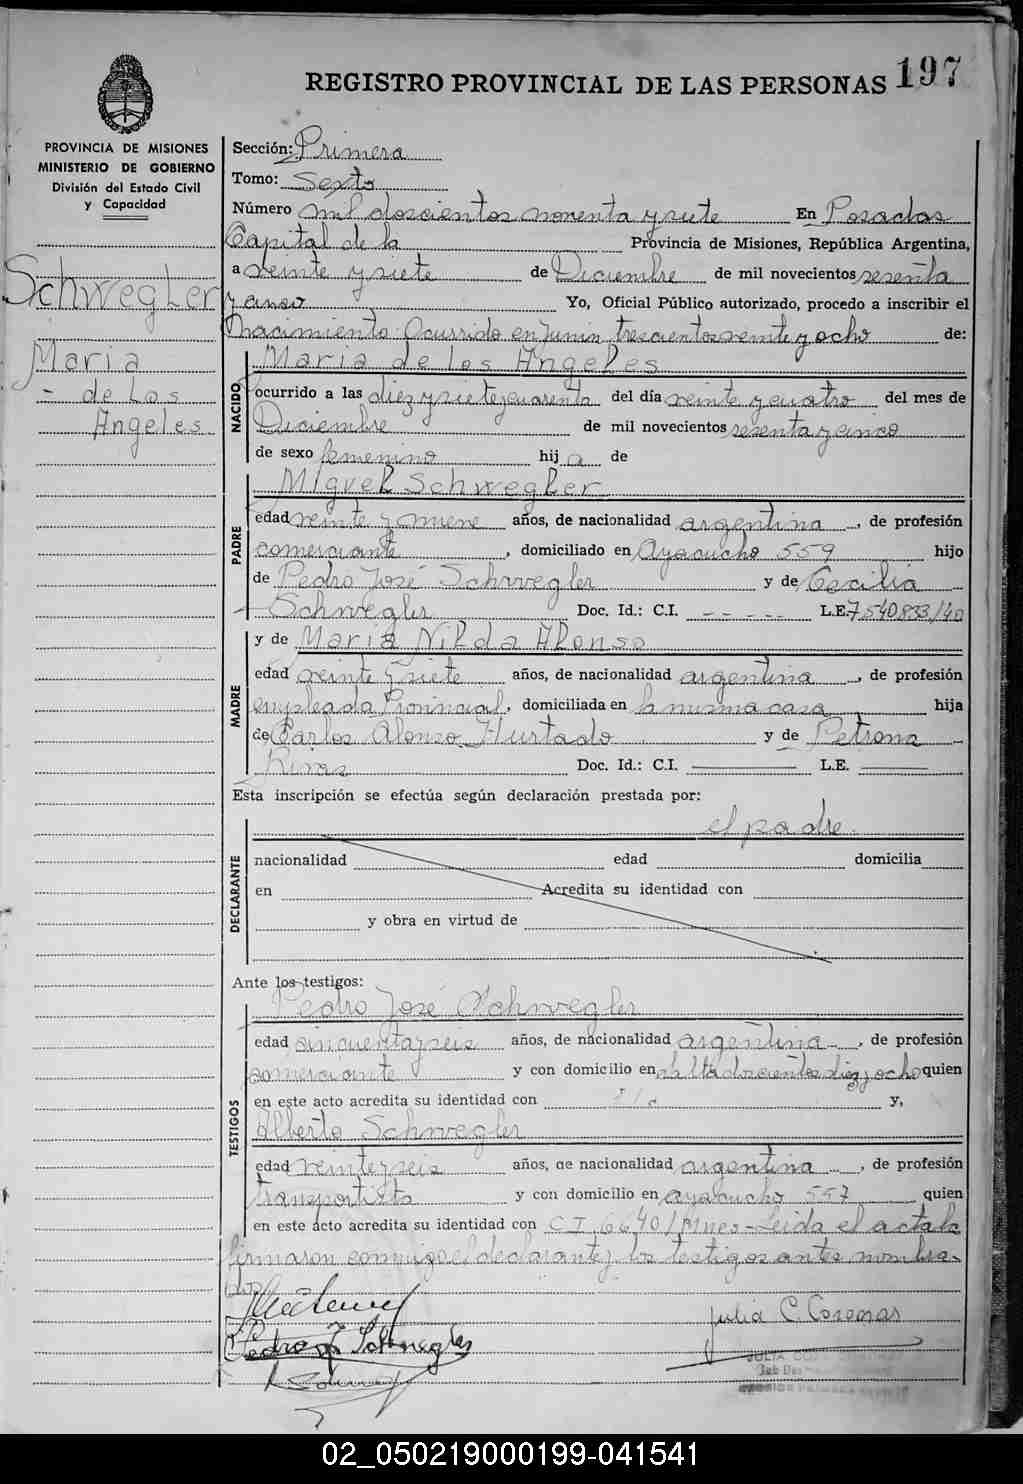 REGISTRO PROVINCIAL DE LAS PERSONAS 197
PROVINCIA DE MISIONES
MINISTERIO DE GOBIERNO
División del Estado Civil
y Capacidad
Schwegler
Maria
- de Los
Angeles
Sección: Primera
Tomo: Sexto
Número mil doscientos noventa y siete En Posadas
Capital de la Provincia de Misiones, República Argentina,
a veinte y siete de Diciembre de mil novecientos sesenta
y cinco Yo, Oficial Público autorizado, procedo a inscribir el
nacimiento: Ocurrido en Junin trescientos veinte y ocho de:
NACIDO
Maria de los Angeles
ocurrido a las diez y siete y cuarenta del día veinte y cuatro del mes de
Diciembre de mil novecientos sesenta y cinco
de sexo femenino hij a de
PADRE
Miguel Schwegler
edad veinte y nueve años, de nacionalidad argentina, de profesión
comerciante, domiciliado en Ayacucho 559 hijo
de Pedro José Schwegler y de Cecilia
Schwegler Doc. Id.: C.I. - - - - - L.E. 7540833/40
MADRE
y de Maria Nilda Alonso
edad veinte y siete años, de nacionalidad argentina, de profesión
empleada Provincial, domiciliada en la misma casa hija
de Carlos Alonso Hurtado y de Petrona
Rivas Doc. Id.: C.I. L.E.
Esta inscripción se efectúa según declaración prestada por:
DECLARANTE
el padre.
nacionalidad edad domicilia
en Acredita su identidad con
y obra en virtud de
Ante los testigos:
TESTIGOS
Pedro José Schwegler
edad cincuenta y seis años, de nacionalidad argentina, de profesión
comerciante y con domicilio en Salta doscientos diez y ocho quien
en este acto acredita su identidad con y,
Alberto Schwegler
edad veinte y seis años, de nacionalidad argentina, de profesión
transportista y con domicilio en ayacucho 557 quien
en este acto acredita su identidad con C.I. 6640/Mnes- Leida el acta la
firmaron conmigo el declarante y los testigos antes nombra-
dos
Julia C. Coremas
Pedro J. Schwegler
JULIA
02_050219000199-041541